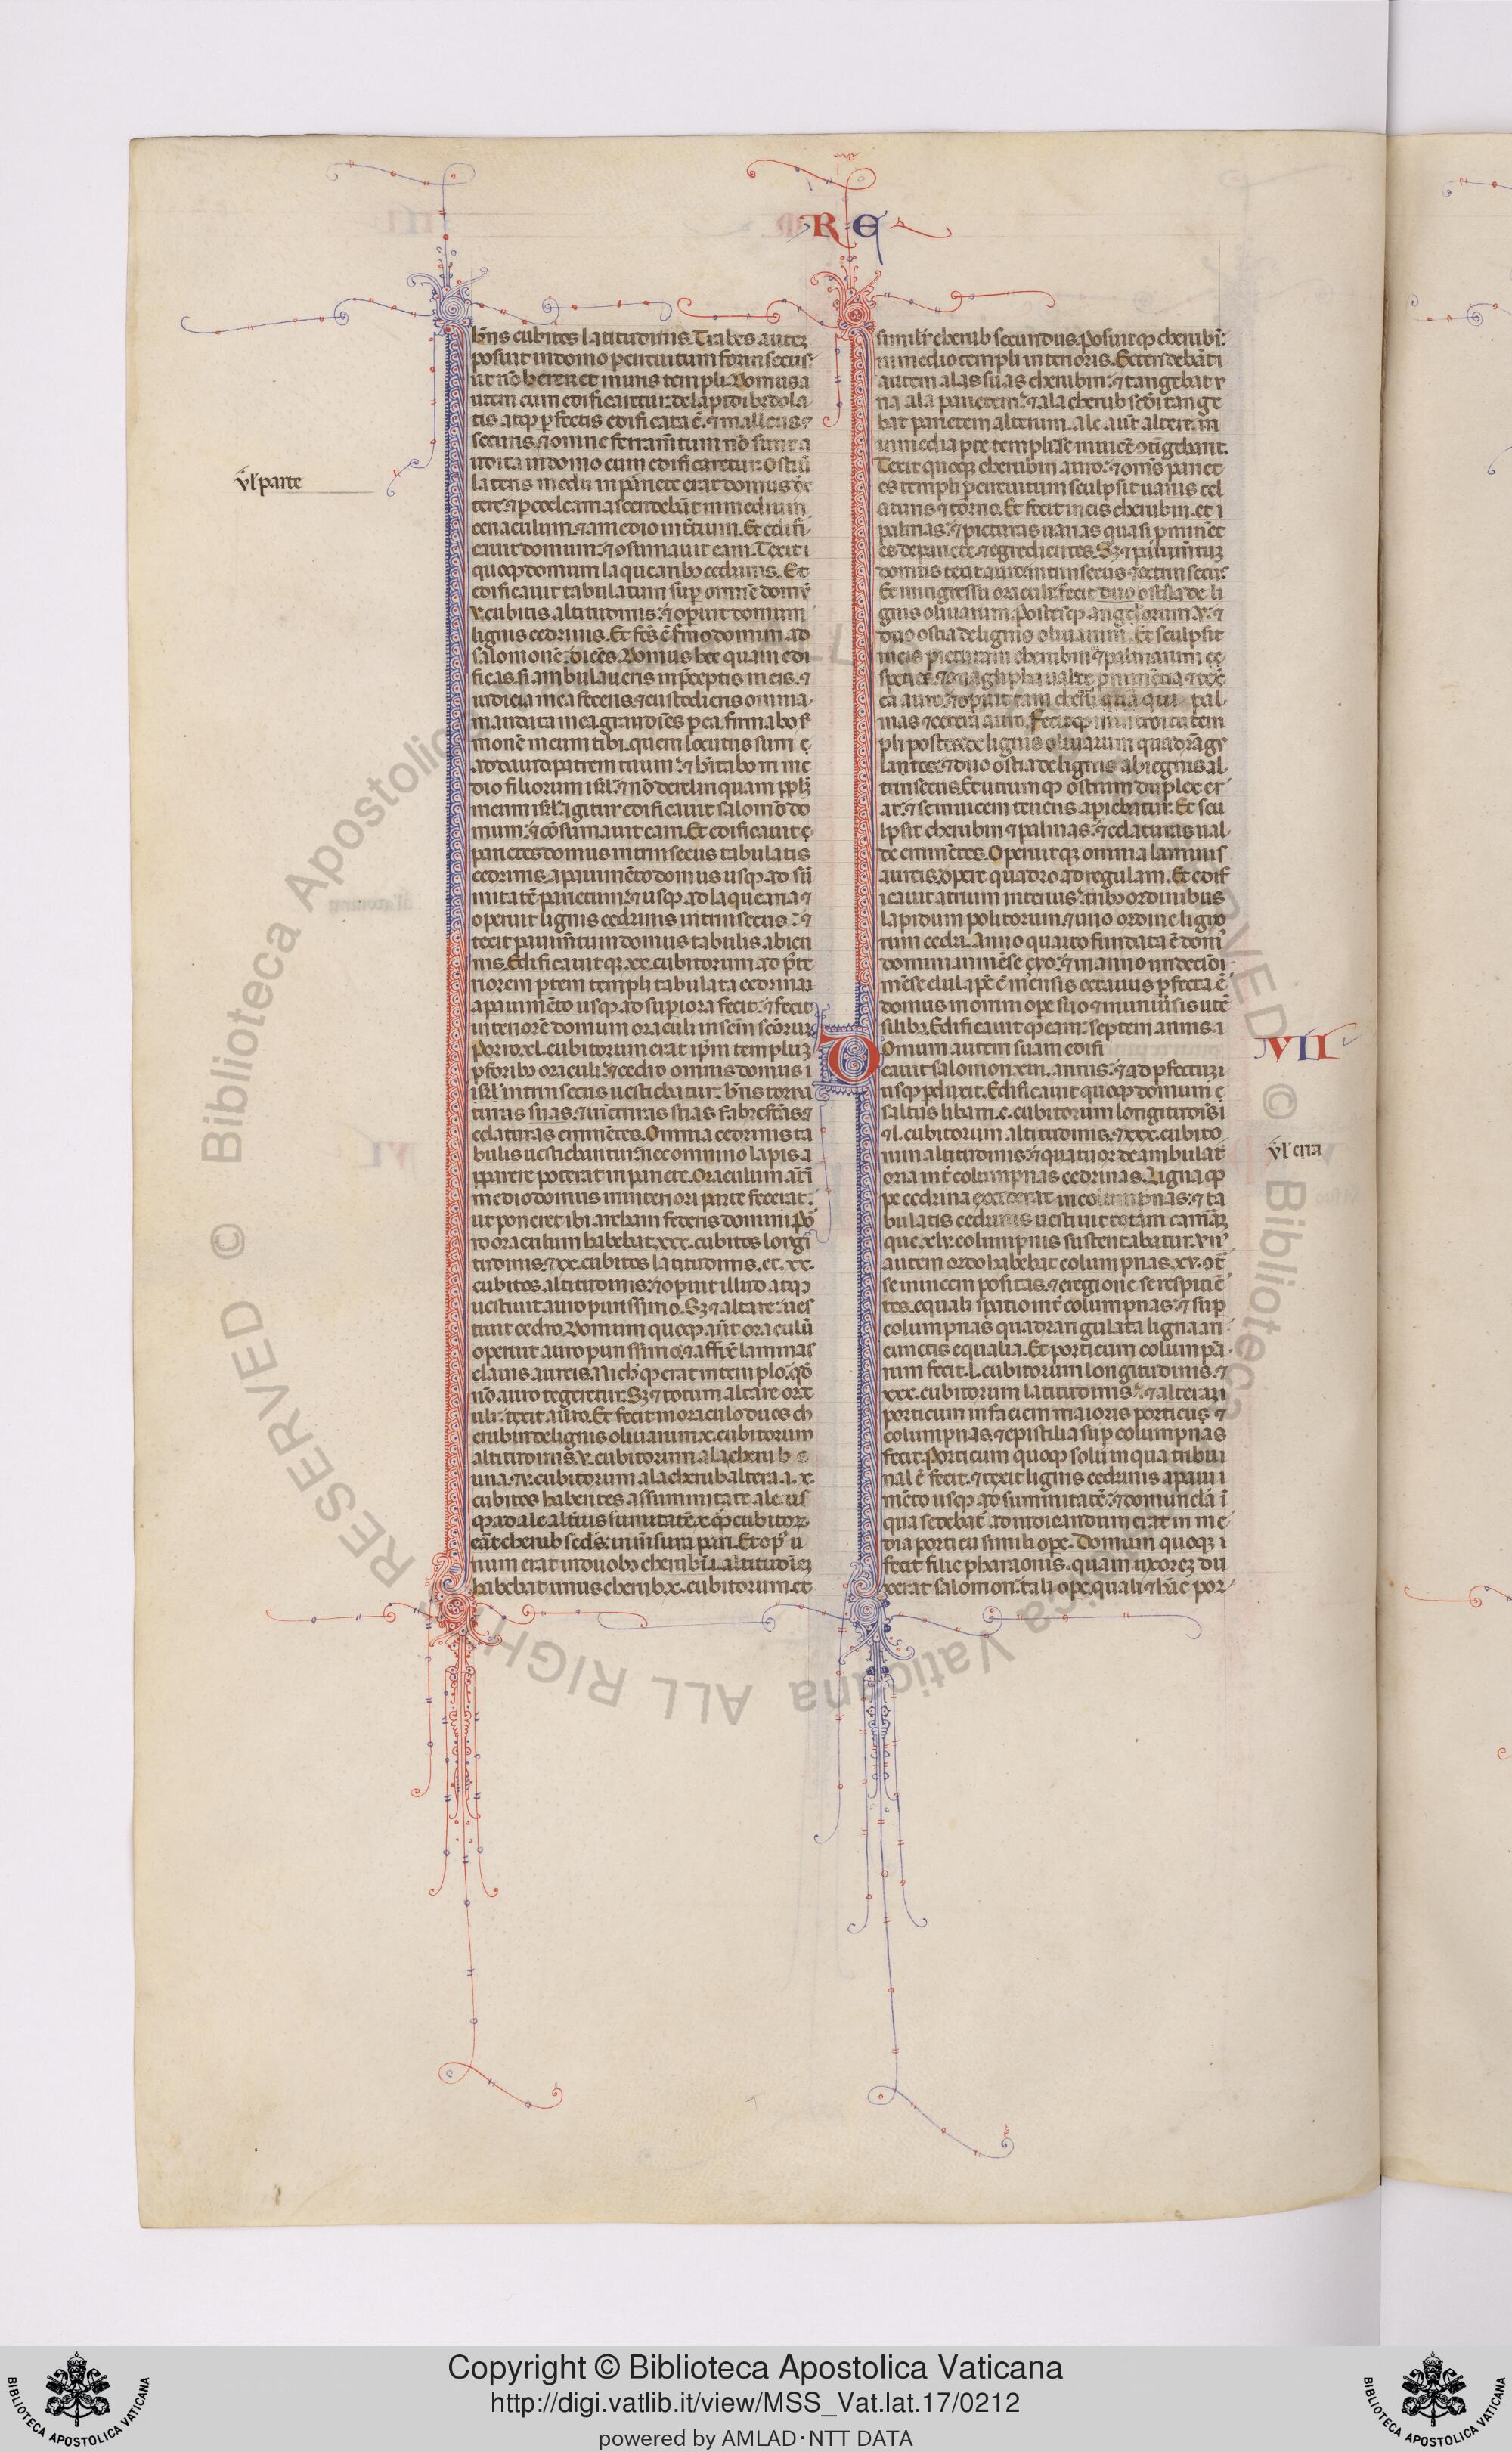 R E
h̄ns cubitos latitudinis. Trabes autez
posuit in domo ꝑ circuitum forinsecus:
ut nō hererēt muris templi. Domus a
utem cum edificaretur: de lapidibꝫ dola
tis atqꝫ ꝑfectis edificata ē. ⁊ malleus ⁊
securis. ⁊ omne ferram̄tum nō sunt a
udita in domo cum edificaretur. Ostiū
lateris medii in pariete erat domus dex
tere. ⁊ ꝑ cocleam ascendebāt in medium
cenaculum. ⁊ a medio in t̄cium. Et edifi-
cauit domum: ⁊ ꝯsumauit eam. Texit
quoqꝫ domum laquearibꝫ cedrinis. Et
edificauit tabulatum suꝑ omnē domū
v. cubitis altitudinis. ⁊ oꝑuit domum
lignis cedrinis. Et fc̄s ē sermo domini ad
salomonē: dicēs. Domus hec quam edi
ficas. si ambulaueris in p̄ceptis meis. ⁊
iudicia mea feceris. ⁊ custodieris omnia
mandata mea gradiēs ꝑ ea. firmabo s̄
monē meum tibi. quem locutus sum
ad dauid patrem tuum. ⁊ h̄itabo in me
dio filiorum isrl̄. ⁊ nō derelinquam pp̄lꝫ
meum isrl̄. Igitur edificauit salomō do
mum: ⁊ cōsumauit eam. Et edificauit
parietes domus intrinsecus tabulatis
cedrinis. a pauimēto domus usqꝫ ad sū
mitatē parietum. ⁊ usqꝫ ad laquearia ⁊
operuit lignis cedrinis intrinsecus. ⁊
texit pauim̄tum domus tabulis abieg
nis. Edificauitqꝫ xx. cubitorum ad p̄te
riorem ꝑtem templi tabulata cedrina
a pauimēto usqꝫ ad suꝑiora fecit. ⁊ fecit
interiorē domum oraculi in sc̄m sc̄orum
Porro. xl. cubitorum erat ip̄m templuꝫ
ꝑ foribꝫ oraculi. ⁊ cedro omnis domus
isrl̄ intrinsecus uestiebatur. h̄ns torna
turas suas. ⁊ iūcturas suas fabrefc̄as. ⁊
celaturas eminētes. Omnia cedrinis ta
bulis uestiebantur. nec omnino lapis a
pparere poterat in pariete. Oraculum aūt ī
medio domus in interiori parte fecerat.
ut poneret ibi archam federis domini. Por
ro oraculum habebat. xxx. cubitos longi
tudinis. ⁊ xx. cubitos latitudinis. et. xx.
cubitos altitudinis. ⁊ oꝑuit illud atqꝫ
uestiuit auro purissimo. Sꝫ ⁊ altare ues
tiuit cedro. Domum quoqꝫ añt oraculū
operuit auro purissimo. ⁊ affixit laminas
clauis aureis. Nichilqꝫ erat in templo. qd̄
nō auro tegeretur. Sꝫ ⁊ totum altare orac
uli: texit auro. Et fecit in oraculo duos ch
erubin de lignis oliuarum. x. cubitorum
altitudinis. v. cubitorum ala cherub
una. ⁊ v. cubitorum ala cherub altera. i. x.
cubitos habentes a summitate ale. us
qꝫ ad ale alterius sumitatē. x. qꝫ cubitorꝫ
erat cherub scd̄s. in m̄sura pari. Et opꝰ u
num erat in duobꝫ cherubin. i. altitudinē
habebat unus cherub. x. cubitorum. et
similiter cherub secundus. Posuitqꝫ cherubin
in medio templi interioris. Extendebāt
autem alas suas cherubin. ⁊ tangebat u
na ala parietem. ⁊ ala cherub scd̄i tange
bat parietem alterum. ale aūt altere. in
in media ꝑte templi se inuicē ꝯtigebant.
Texit quoqꝫ cherubin auro. ⁊ om̄s pariet
es templi ꝑ circuitum sculpsit uariis cel
aturis ⁊ torno. Et fecit in eis cherubin. et
palmas. ⁊ picturas uarias quasi prominēt
es de pariete. ⁊ egredientes. Sꝫ ⁊ pauim̄tuꝫ
domus texit auro. intrinsecus ⁊ extrinsecus
Et in ingressu oraculi fecit duo ostiola de li
gnis oliuarum. Postesqꝫ angulorum. v. ⁊
duo ostia de lignis oliuarum. Et sculpsit
in eis picturam cherubin. ⁊ palmarum
species. ⁊ anaglipha ualde prominētia. ⁊ texit
ea auro. ⁊ oꝑuit tam cherubin quā qui pal-
mas ⁊ cetera auro. Fecitqꝫ in introitu tem
pli postes de lignis oliuarum quadrāgu
lantes. ⁊ duo ostia de lignis abiegnis al
trinsecus. Et utrumqꝫ ostium duplex er
at. ⁊ se inuicem tenens apiebatur. Et scu
lpsit cherubin ⁊ palmas. ⁊ celaturas ual-
de eminētes. Operuitqꝫ omnia laminis
aureis. opere quadro ad regulam. Et edif
icauit atrium interius. tribꝫ ordinibus
lapidum politorum. ⁊ uno ordine ligno
rum cedri. Anno quarto fundata ē domꝰ
domini in mēse cyo. ⁊ in anno undecimo
mēse clul. ip̄e ē mensis octauus ꝑfecta ē
domus in omni oꝑe suo ⁊ in uniūsis utē
silibꝫ. Edificauit qꝫ eam: septem annis.
Domum autem suam edifi
cauit salomon. xiii. annis. ⁊ ad ꝑfectum
usqꝫ ꝑduxit. Edificauit quoqꝫ domum
saltus libani. c. cubitorum longitudinis
⁊ l. cubitorum altitudinis. ⁊ xxx. cubito
rum altitudinis. ⁊ quatuor deambulat
oria int̄ columpnas cedrinas. Ligna qꝫ
pe cedrina exciderat in columpnas. ⁊ ta
bulatis cedrinis uestiuit totam camerāꝫ
que. xlv. columpnis sustentabatur. Vnꝰ
autem ordo habebat columpnas. xv. ꝯt̄
se inuicem positas. ⁊ e regione se respiciē
tes. equali spatio int̄ columpnas. ⁊ suꝑ
columpnas quadrangulata ligna in
cunctis equalia. Et porticum columpna
rum fecit. l. cubitorum longitudinis. ⁊
xxx. cubitorum latitudinis. ⁊ alteram
porticum in faciem maioris porticus ⁊
columpnas. ⁊ epistilia suꝑ columpnas
fecit. Porticum quoqꝫ solii in qua tribu
nal ē fecit. ⁊ texit lignis cedrinis a paui
mēto usqꝫ ad summitatē. ⁊ domuncla ī
qua sedebat̄ ad iudicandum erat in me
dia porticu simili oꝑe. Domum quoqꝫ
fecit filie pharaonis. quam uxorez du
xerat salomon. tali oꝑe. quali ⁊ hāc por-
vl' parte
VII
vl' erra
© Biblioteca Apostolica Vaticana ALL RIGHTS RESERVED
BIBLIOTECA APOSTOLICA VATICANA
Copyright © Biblioteca Apostolica Vaticana
http://digi.vatlib.it/view/MSS_Vat.lat.17/0212
powered by AMLAD·NTT DATA
BIBLIOTECA APOSTOLICA VATICANA